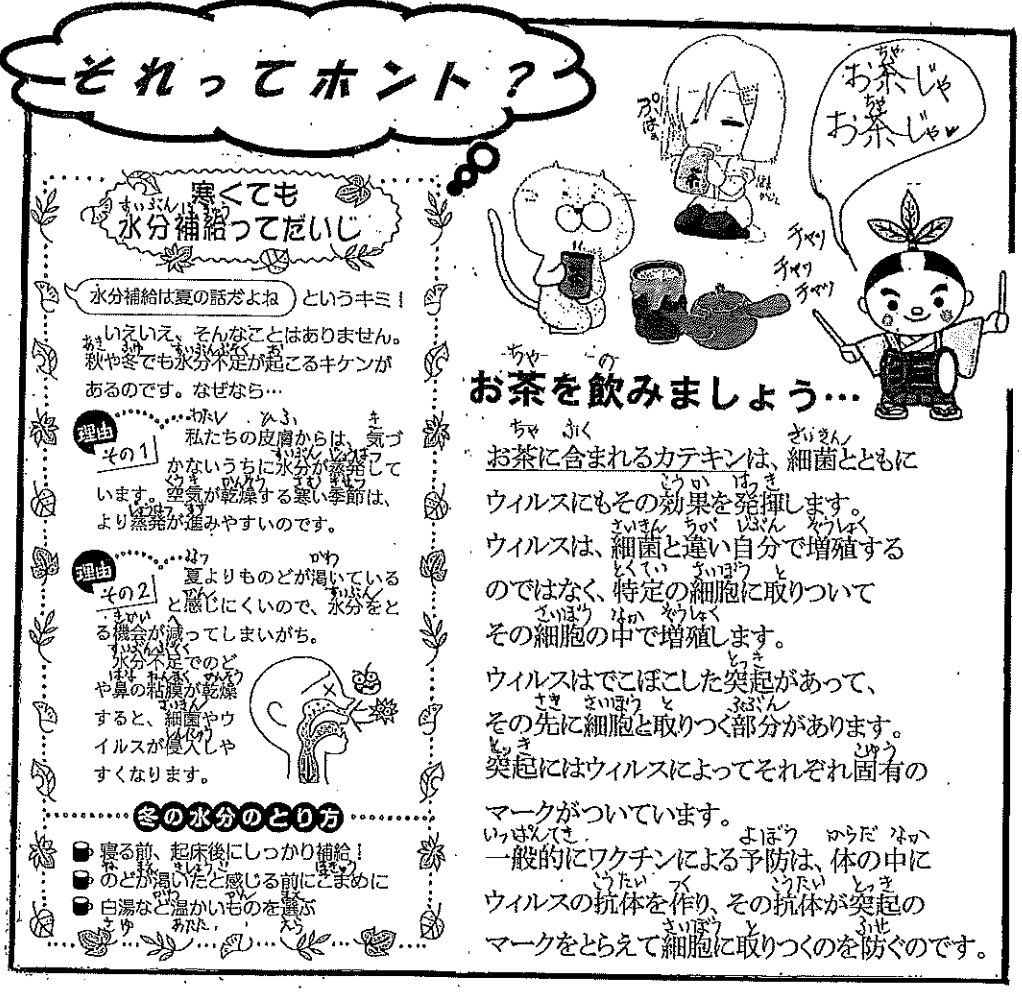 それってホント？
寒くても
水分補給ってだいじ
水分補給は夏の話だよね というキミ！
いえいえ、そんなことはありません。
秋や冬でも水分不足が起こるキケンが
あるのです。なぜなら…
理由
その1
私たちの皮膚からは、気づ
かないうちに水分が蒸発して
います。空気が乾燥する寒い季節は、
より蒸発が進みやすいのです。
理由
その2
夏よりものどが渇いている
と感じにくいので、水分をと
る機会が減ってしまいがち。
水分不足でのど
や鼻の粘膜が乾燥
すると、細菌やウ
イルスが侵入しや
すくなります。
冬の水分のとり方
寝る前、起床後にしっかり補給！
のどが渇いたと感じる前にこまめに
白湯など温かいものを選ぶ
ぷはぁ
茶
お茶じゃ
お茶じゃ♥
チャッ
チャッ
チャッ
お茶を飲みましょう…
お茶に含まれるカテキンは、細菌とともに
ウィルスにもその効果を発揮します。
ウィルスは、細菌と違い自分で増殖する
のではなく、特定の細胞に取りついて
その細胞の中で増殖します。
ウィルスはでこぼこした突起があって、
その先に細胞と取りつく部分があります。
突起にはウィルスによってそれぞれ固有の
マークがついています。
一般的にワクチンによる予防は、体の中に
ウィルスの抗体を作り、その抗体が突起の
マークをとらえて細胞に取りつくのを防ぐのです。